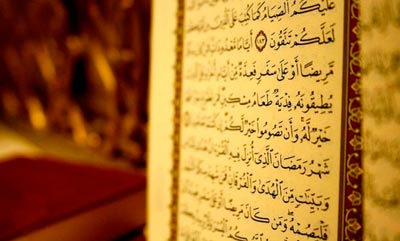 عَلَيْكُمُ الصِّيَامُ كَمَا كُتِبَ عَلَى الَّذِينَ
لَعَلَّكُمْ تَتَّقُونَ ﴿١٨٣﴾ أَيَّامًا مَّعْدُودَاتٍ
مَّرِيضًا أَوْ عَلَىٰ سَفَرٍ فَعِدَّةٌ مِّنْ أَيَّامٍ
يُطِيقُونَهُ فِدْيَةٌ طَعَامُ مِسْكِينٍ
خَيْرٌ لَّهُ وَأَن تَصُومُوا خَيْرٌ لَّكُمْ
شَهْرُ رَمَضَانَ الَّذِي أُنزِلَ فِيهِ
وَبَيِّنَاتٍ مِّنَ الْهُدَىٰ وَالْفُرْقَانِ
فَلْيَصُمْهُ وَمَن كَانَ مَرِيضًا